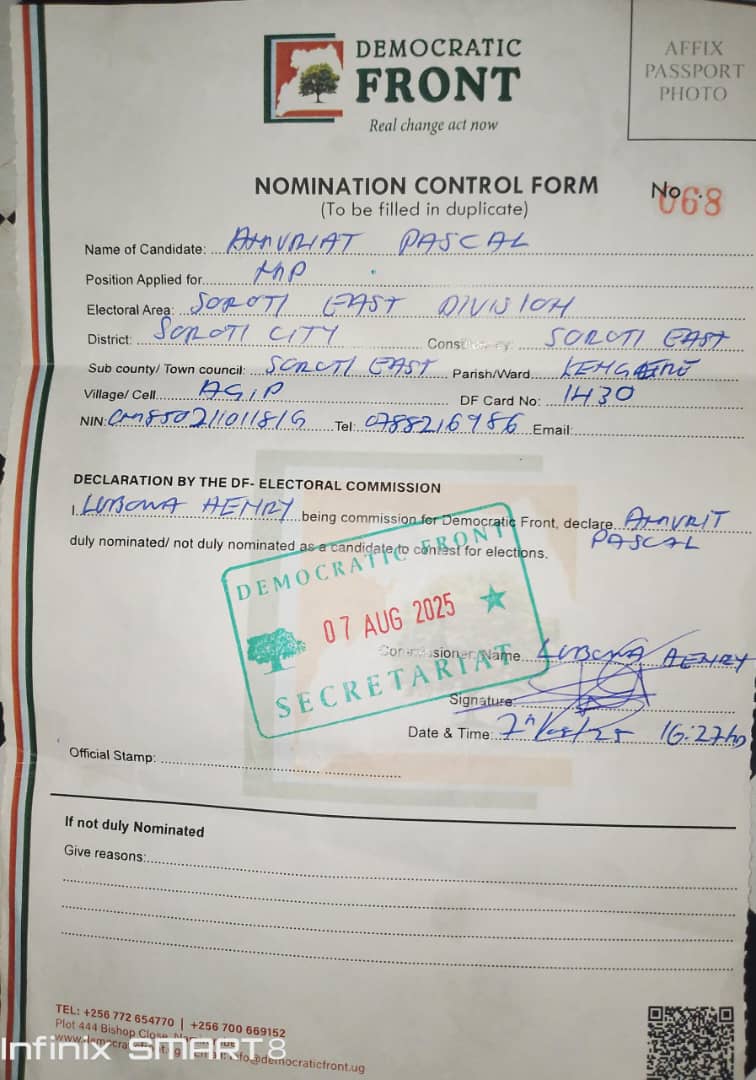 DEMOCRATIC
FRONT
Real change act now
AFFIX
PASSPORT
PHOTO
NOMINATION CONTROL FORM
(To be filled in duplicate)
No. 068
Name of Candidate: AMURIAT PASCAL
Position Applied for MP
Electoral Area: SOROTI EAST DIVISION
District: SOROTI CITY Constituency: SOROTI EAST
Sub county/ Town council: SOROTI EAST Parish/Ward
Village/ Cell AGIP DF Card No: 1430
NIN: Tel: 0788216986 Email:
DECLARATION BY THE DF- ELECTORAL COMMISSION
I, LUBOWA HENRY being commission for Democratic Front, declare AMURIT
PASCAL
duly nominated/ not duly nominated as a candidate to contest for elections.
DEMOCRATIC FRONT
07 AUG 2025
SECRETARIAT
Commissioner Name LUBOWA HENRY
Signature:
Date & Time: 16:27
Official Stamp:
If not duly Nominated
Give reasons:
TEL: +256 772 654770 | +256 700 669152
Plot 444 Bishop Close,
info@democraticfront.ug
Infinix SMART 8